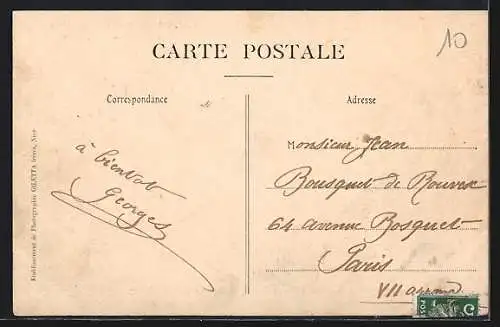 CARTE POSTALE
10
Correspondance
Adresse
à bientot
Georges
Monsieur Jean
Bousquet de Rouvex
64 avenue Bosquet
Paris
VII arrond
Etablissement de Photographie GILETTA frères, Nice
POST